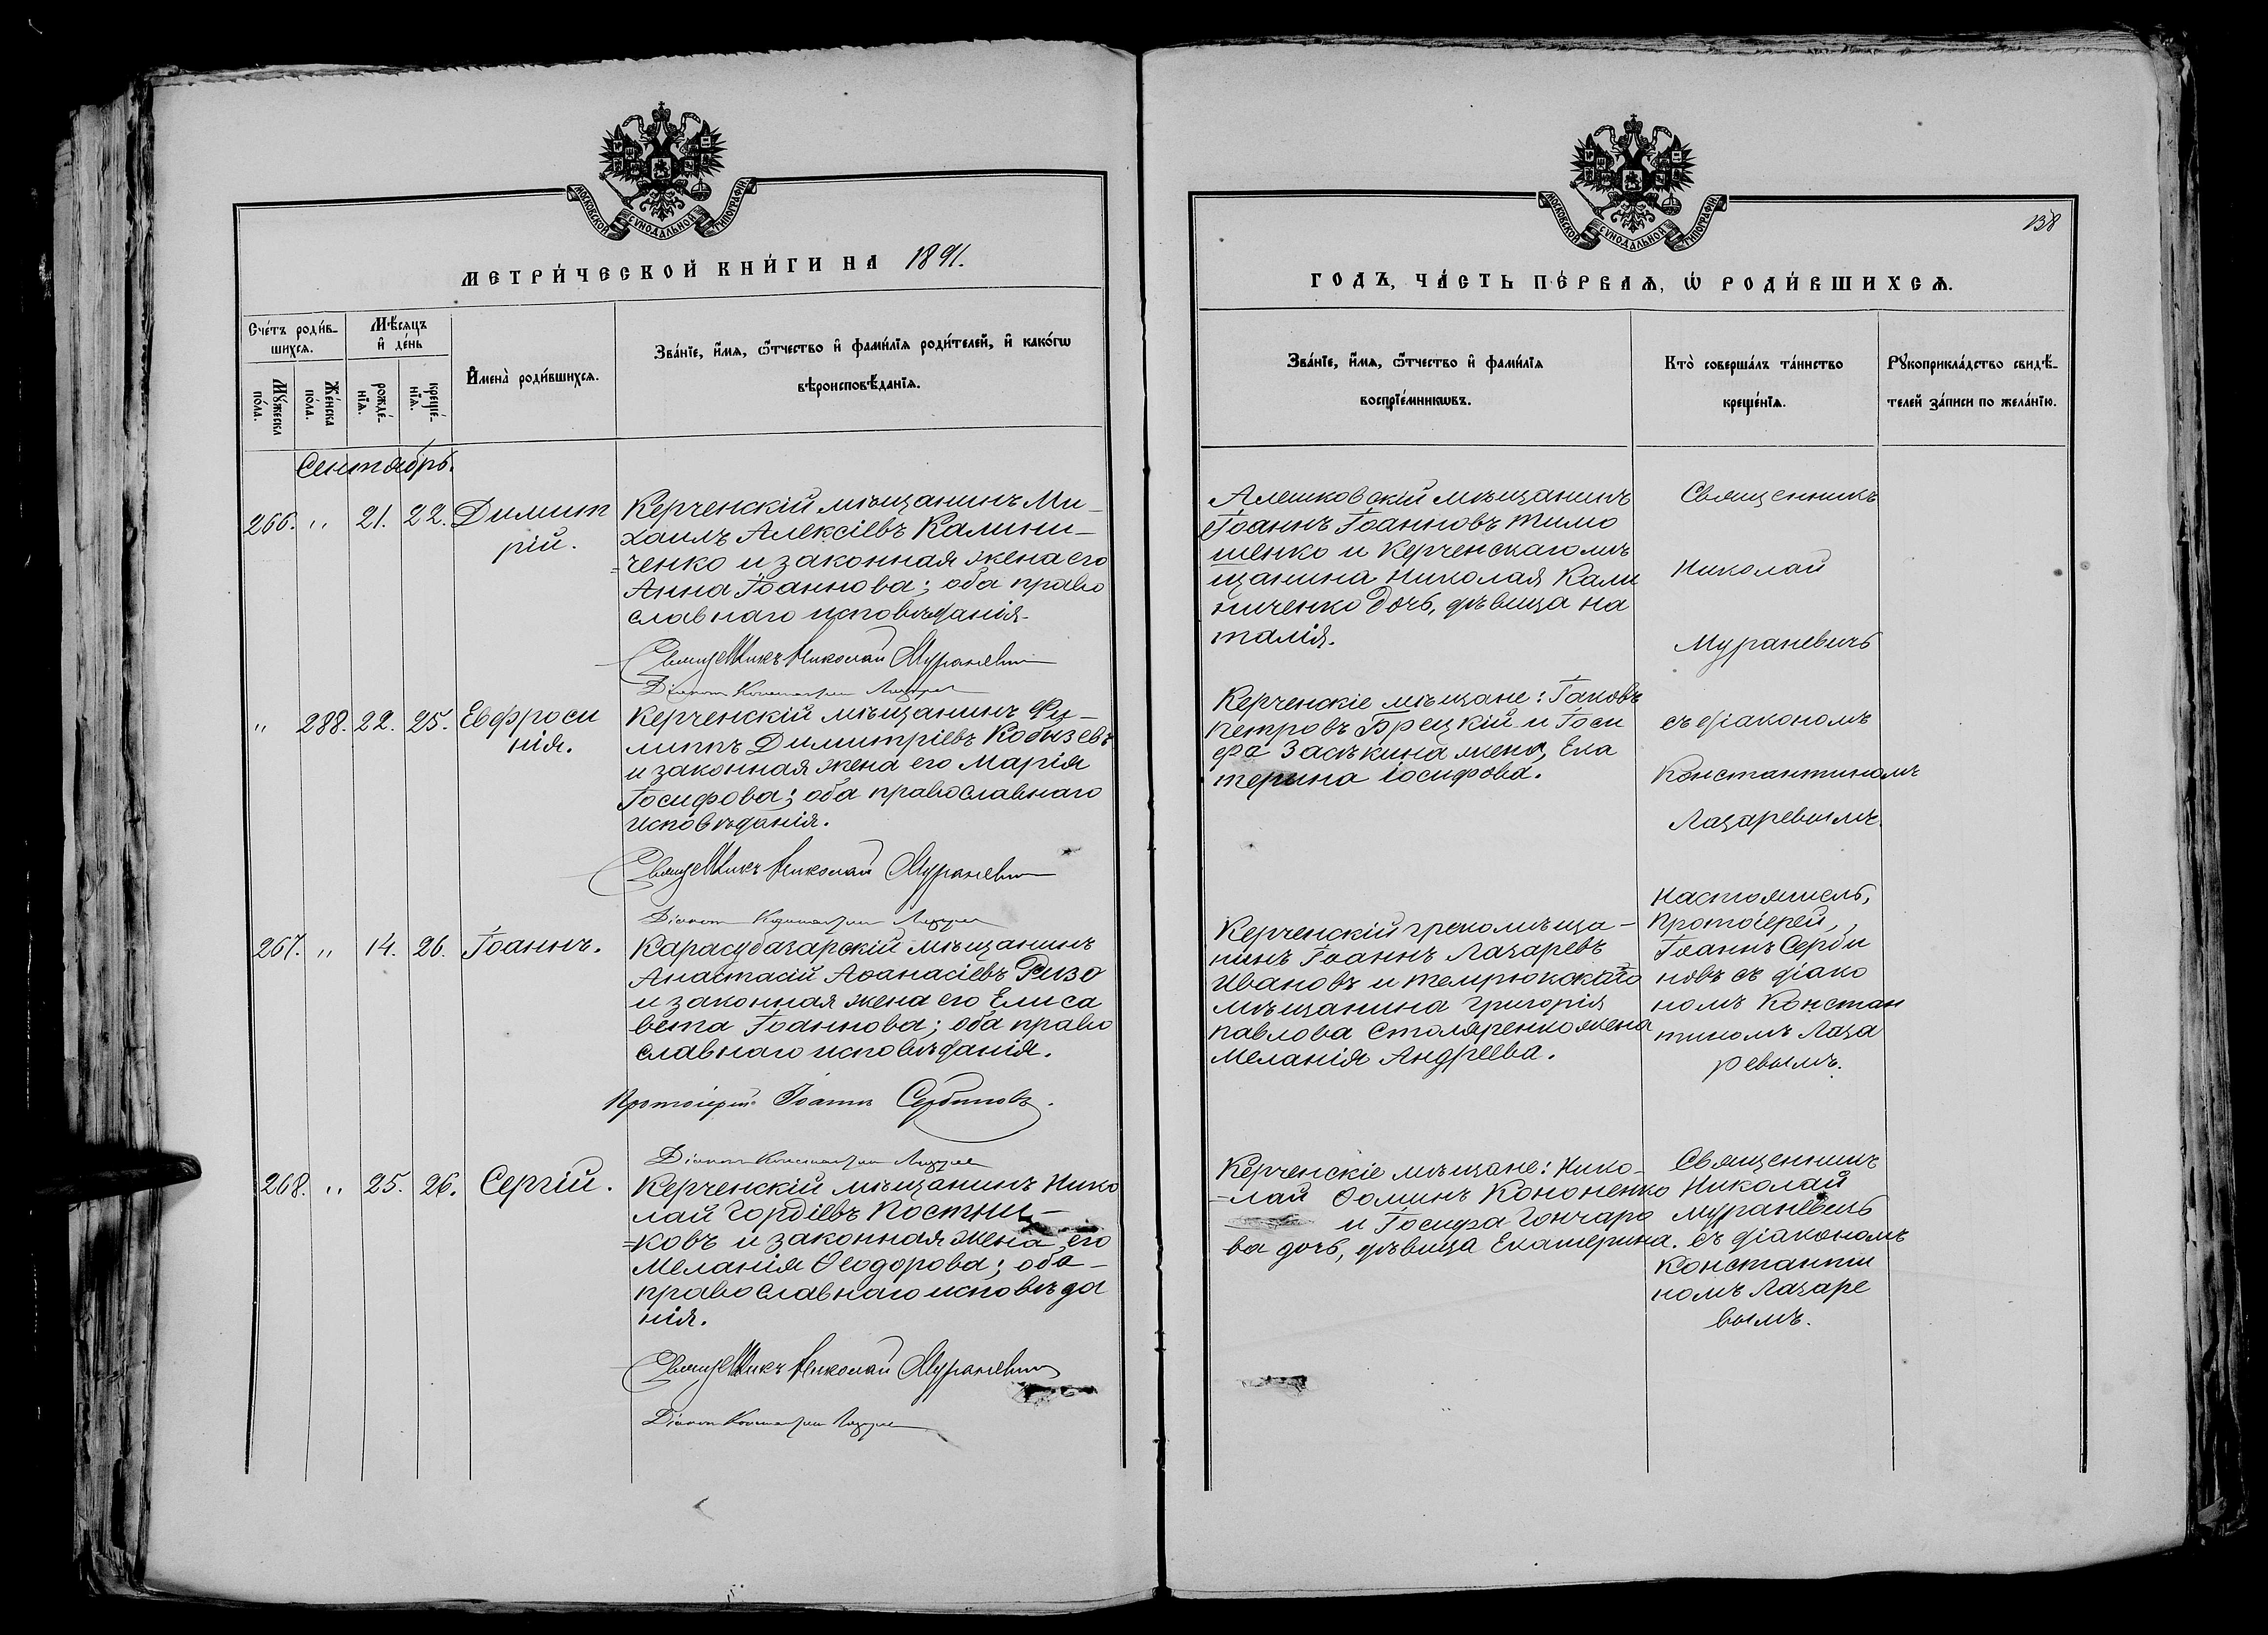 МОСКОВСКОЙ СУНОДАЛЬНОЙ ТИПОГРАФІИ.
МЕТРИ́ЧЕСКОЙ КНИ́ГИ НА 1891.
Сче́тъ роди́в-
шихсѧ.
Мѣ́сѧцъ
и҆ де́нь
Мꙋ́жеска
по́ла.
Же́нска
по́ла.
рожде́-
нїѧ.
креще́-
нїѧ.
И҆мена̀ роди́вшихсѧ.
Зва́нїе, и҆́мѧ, ѻ҆́тчество и҆ фами́лїѧ роди́телей, и҆ како́гѡ
вѣроисповѣ́данїѧ.
Сентябрь.
266. " 21. 22. Димит
рій.
Керченскій мѣщанинъ Ми-
хаилъ Алексіевъ Калини-
=ченко и законная жена его
Анна Іоаннова; оба право
славнаго исповѣданія.
Священникъ Николай Мураневич
Діакон Константин Лазарев
" 288. 22. 25. Евфроси
нія.
Керченскій мѣщанинъ Фи-
липпъ Димитріевъ Кобызевъ
и законная жена его Марія
Іосифова; оба православнаго
исповѣданія.
Священникъ Николай Мураневич
Діакон Константин Лазарев
267. " 14. 26. Іоаннъ.
Карасубазарскій мѣщанинъ
Анастасій Аѳанасіевъ Ризо
и законная жена его Елиса
вета Іоаннова; оба право
славнаго исповѣданія.
Протоіерей Іоаннъ Сербиновъ.
Діакон Константин Лазарев
268. " 25. 26. Сергій.
Керченскій мѣщанинъ Нико
лай Гордіевъ Постни-
=ковъ и законная жена его
Меланія Ѳеодорова; оба-
православнаго исповѣда
нія.
Священникъ Николай Мураневич
Діакон Константин Лазарев
МОСКОВСКОЙ СУНОДАЛЬНОЙ ТИПОГРАФІИ.
138
ГОДЪ, ЧА́СТЬ ПЕ́РВАѦ, Ѡ҆ РОДИ́ВШИХСѦ.
Зва́нїе, и҆́мѧ, ѻ҆́тчество и҆ фами́лїѧ
воспрїе́мникѡвъ.
Кто̀ соверша́лъ та́инство
креще́нїѧ.
Рꙋкоприкла́дство свидѣ́-
телей за́писи по жела́нїю.
Алешковскій мѣщанинъ
Іоаннъ Іоанновъ Тимо
шенко и Керченскаго мѣ
щанина Николая Кали
ниченко дочь, дѣвица На
талія.
Священникъ
Николай
Мураневичъ
съ діакономъ
Константиномъ
Лазаревымъ.
Керченскіе мѣщане: Іаковъ
Петровъ Брецкій и Іоси
фа Засѣкина жена, Ека
терина Іосифова.
Керченскій грекомѣща-
нинъ Іоаннъ Лазаревъ
Ивановъ и Темрюкскаго
мѣщанина Григорія
Павлова Столяренко жена
Меланія Андреева.
Настоятель,
Протоіерей,
Іоаннъ Серби
новъ съ діако
номъ Констан
тиномъ Лаза
ревымъ.
Керченскіе мѣщане: Нико-
=лай Ѳоминъ Кононенко
и Іосифа Гончаро
ва дочь, дѣвица Екатерина.
Священникъ
Николай
Мураневичъ
съ діакономъ
Константи
номъ Лазаре
вымъ.